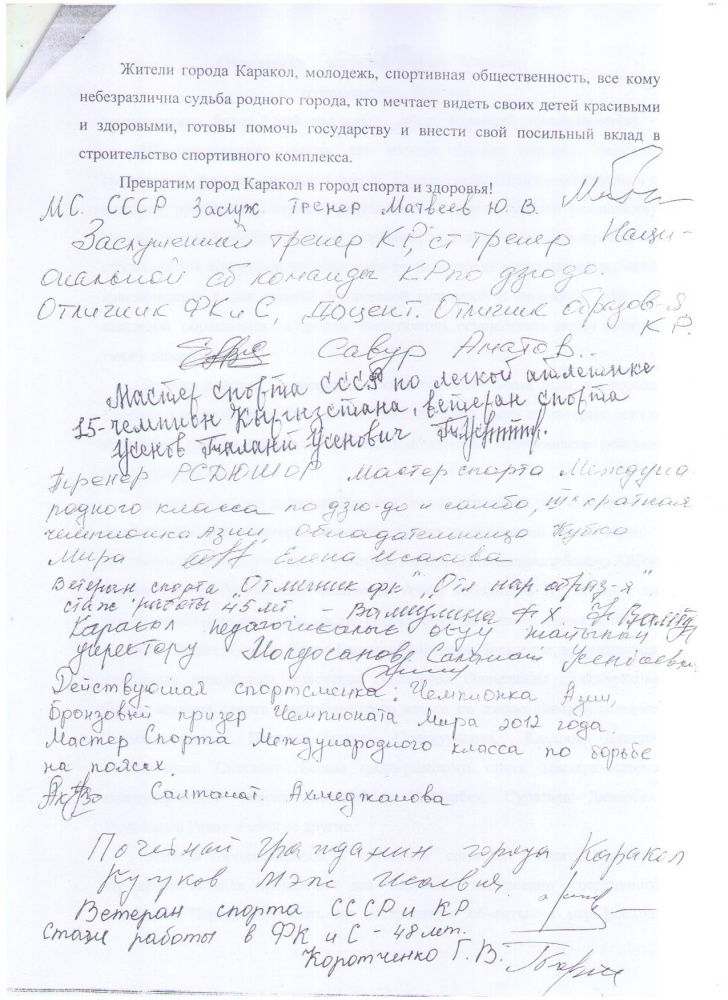 Жители города Каракол, молодежь, спортивная общественность, все кому
небезразлична судьба родного города, кто мечтает видеть своих детей красивыми
и здоровыми, готовы помочь государству и внести свой посильный вклад в
строительство спортивного комплекса.
Превратим город Каракол в город спорта и здоровья!
М.С. СССР Заслуж тренер Матвеев Ю.В.
Заслуженный тренер КР, ст тренер Наци-
ональной сб команды КР по дзюдо.
Отличник ФК и С, Доцент. Отличник образов-я
КР.
Савур Аматов.
Мастер спорта СССР по легкой атлетике
15-чемпион Кыргызстана, ветеран спорта
Усенов Талант Усенович
Тренер РСДЮШОР мастер спорта Междуна
родного класса по дзю-до и самбо, III кратная
чемпионка Азии, Обладательница Кубка
Мира Елена Исакова
Ветеран спорта "Отличник фк", "Отл нар. образ-я"
стаж работы 45 лет -
Каракол педагогикалык окуу жайынын
директору Молдосанова
Действующая спортсменка: Чемпионка Азии,
Бронзовый призер Чемпионата Мира 2012 года.
Мастер Спорта Международного класса по борьбе
на поясах.
Салтанат. Ахмеджанова
Почетный гражданин города Каракол
Ветеран спорта СССР и КР
Стаж работы в ФК и С - 48 лет.
Коротченко Г.В.